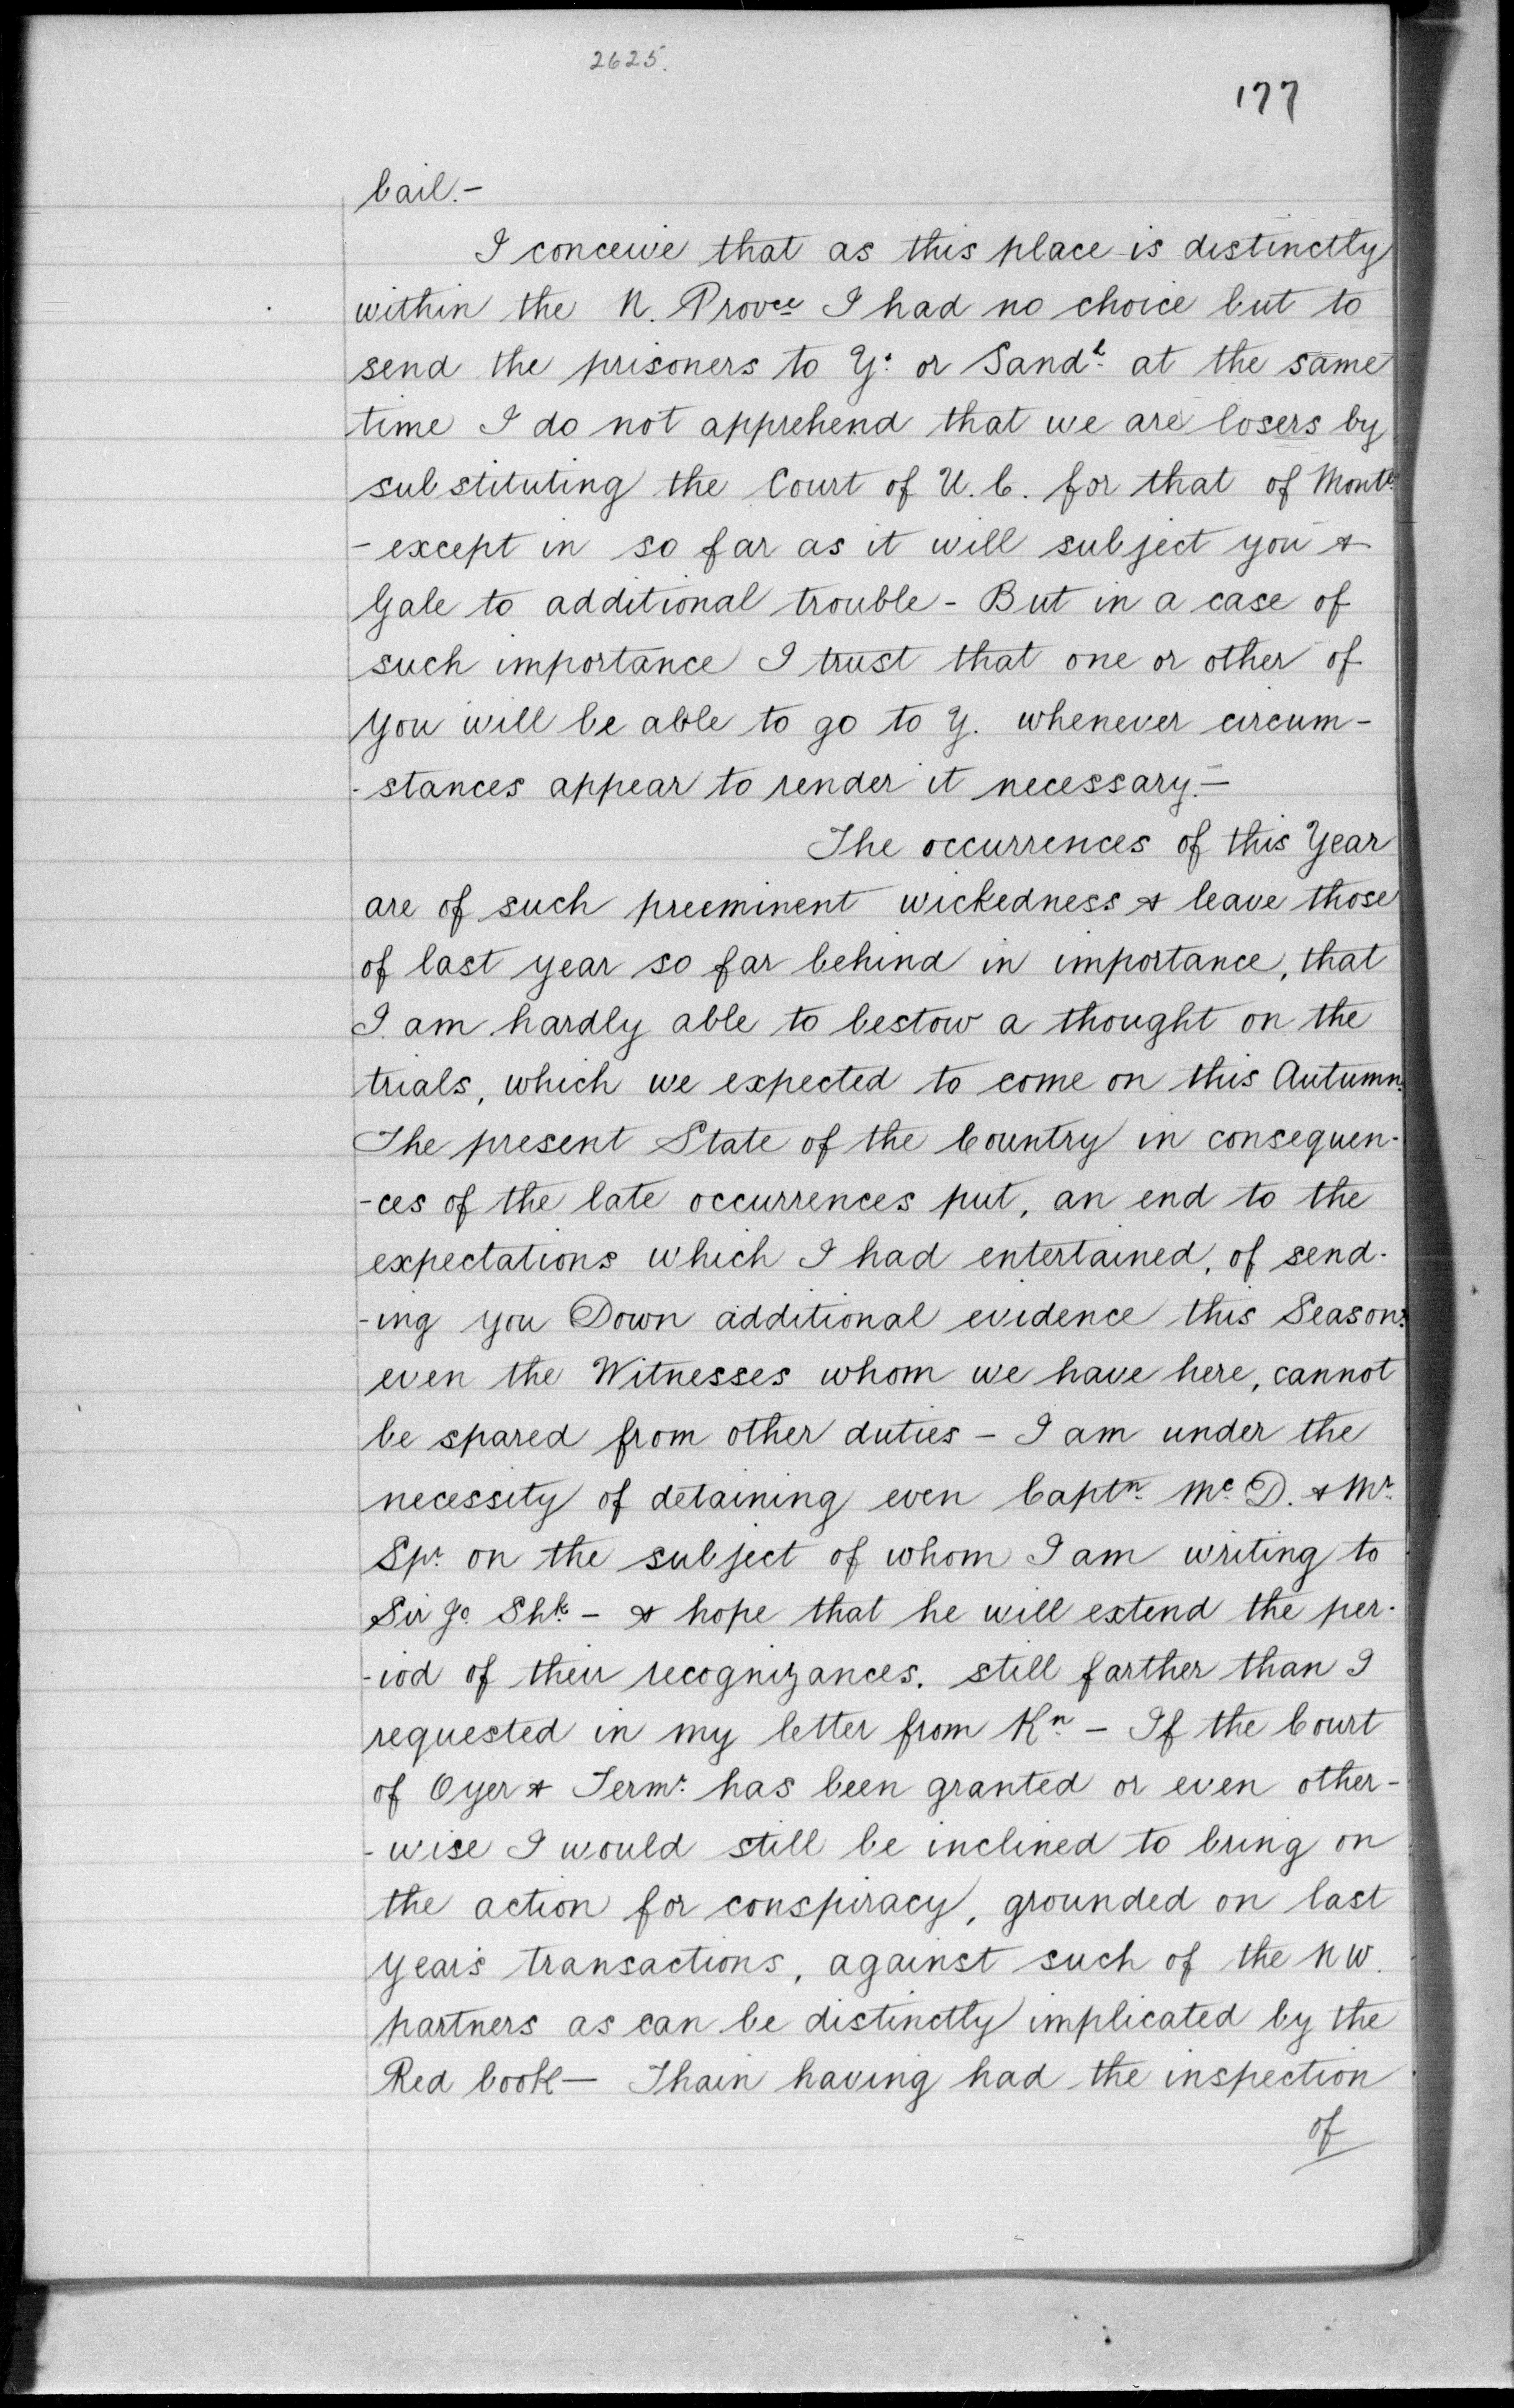 2625.
177
bail.-
I conceive that as this place is distinctly
within the N. Provce I had no choice but to
send the prisoners to Y. or Sandh. at the same
time I do not apprehend that we are losers by
substituting the Court of U.C. for that of Montl.
- except in so far as it will subject you &
Gale to additional trouble - But in a case of
such importance I trust that one or other of
you will be able to go to Y. whenever circum-
-stances appear to render it necessary.-
The occurrences of this Year
are of such preeminent wickedness & leave those
of last year so far behind in importance, that
I am hardly able to bestow a thought on the
trials, which we expected to come on this Autumn.
The present State of the Country in consequen-
-ces of the late occurrences put, an end to the
expectations which I had entertained, of send-
-ing you Down additional evidence this Season:
even the Witnesses whom we have here, cannot
be spared from other duties - I am under the
necessity of detaining even Captn. Mc.D. & Mr.
Spr. on the subject of whom I am writing to
Sir Jo Shk. - & hope that he will extend the per-
-iod of their recognizances. still farther than I
requested in my letter from Kn. - If the Court
of Oyer & Termr. has been granted or even other-
-wise I would still be inclined to bring on
the action for conspiracy, grounded on last
year's transactions, against such of the N W.
partners as can be distinctly implicated by the
Red book - Thain having had the inspection
of